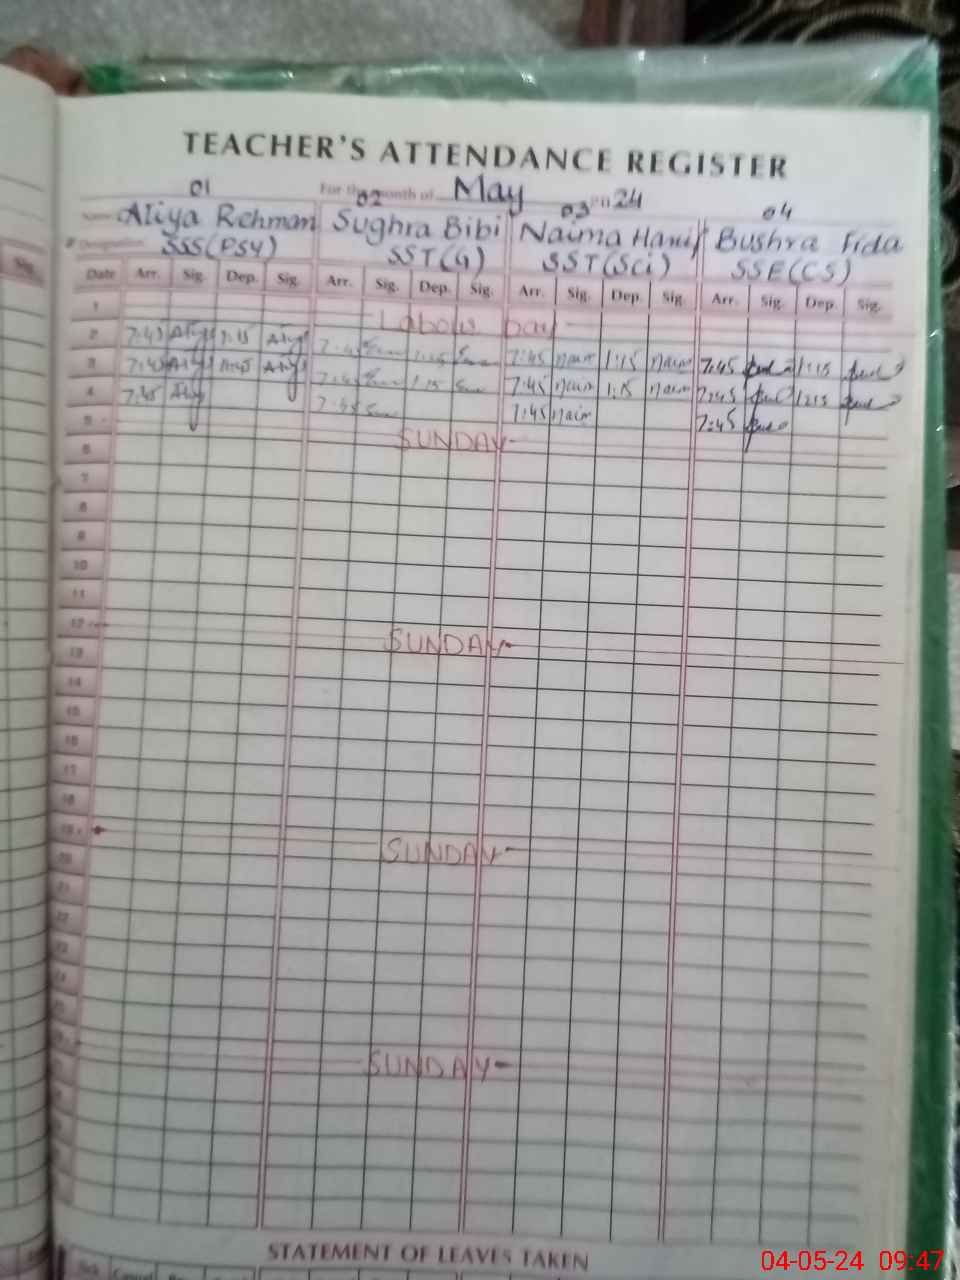 TEACHER'S ATTENDANCE REGISTER
01 02 03 04
For the month of May 24
Aliya Rehman Sughra Bibi Naima Hanif Bushra Fida
Designation SSS(PSY) SST(G) SST(Sci) SSE(CS)
Date Arr. Sig. Dep. Sig. Arr. Sig. Dep. Sig. Arr. Sig. Dep. Sig. Arr. Sig. Dep. Sig.
1 Labour Day
2 7:45 1:15 7:45 1:15 7:45 Naim 1:15 Naim 7:45 1:15
3 7:45 7:45 1:15 7:45 Naim 1:15 Naim 7:45 1:15
4 7:45 7:45 7:45 Naim 7:45
5 SUNDAY
6
7
8
9
10
11
12 SUNDAY
13
14
15
16
17
18
19 SUNDAY
20
21
22
23
24
25
SUNDAY
STATEMENT OF LEAVES TAKEN
04-05-24 09:47